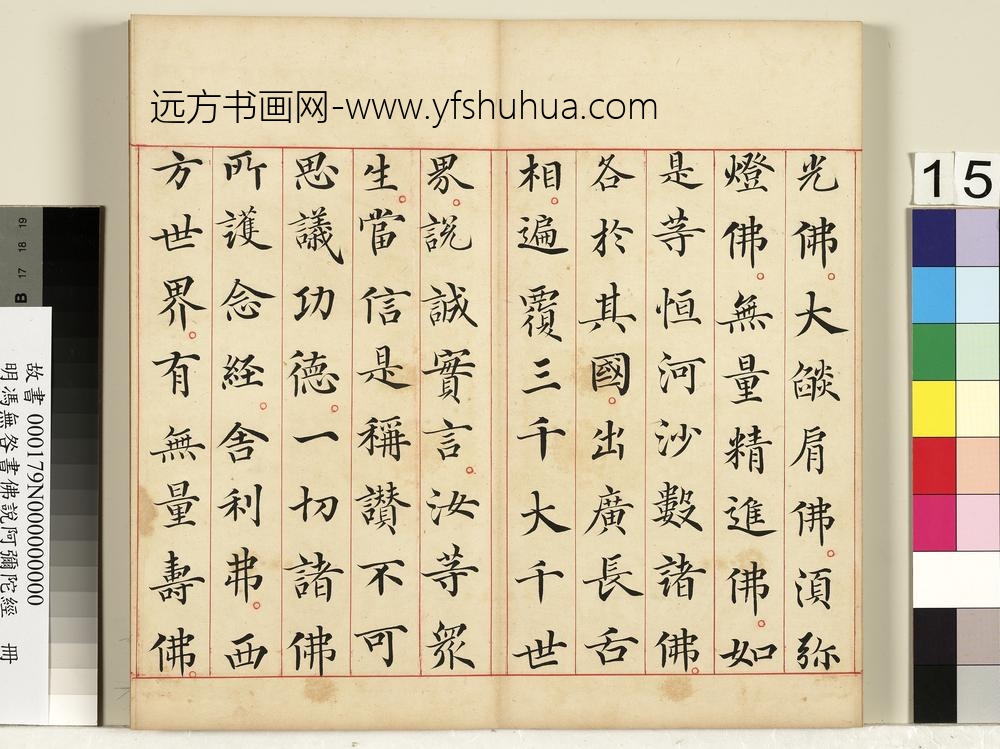 远方书画网-www.yfshuhua.com
光佛。大燄肩佛。須弥
燈佛。無量精進佛。如
是等恒河沙數諸佛。
各於其國。出廣長舌
相。遍覆三千大千世
界。說誠實言。汝等眾
生。當信是稱讃不可
思議功德。一切諸佛
所護念経。舍利弗。西
方世界。有無量壽佛。
15
19
18
17
B
故書 000179N000000000
明馮無咎書佛說阿彌陀經 冊